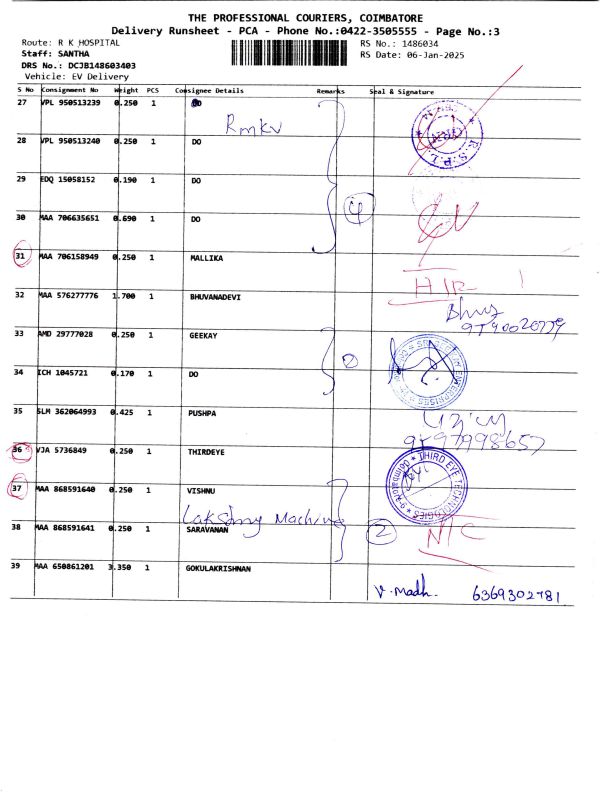 THE PROFESSIONAL COURIERS, COIMBATORE
Delivery Runsheet - PCA - Phone No.:0422-3505555 - Page No.:3
Route: R K HOSPITAL
RS No.: 1486034
Staff: SANTHA
RS Date: 06-Jan-2025
DRS No.: DCJB148603403
Vehicle: EV Delivery
S No Consignment No Weight PCS Consignee Details Remarks Seal & Signature
27 VPL 950513239 0.250 1 DO
Rmkv
R.S.P.L.
28 VPL 950513240 0.250 1 DO
29 EDQ 15058152 0.190 1 DO
4
30 MAA 706635651 0.690 1 DO
31 MAA 706158949 0.250 1 MALLIKA
32 MAA 576277776 1.700 1 BHUVANADEVI
33 AMD 29777028 0.250 1 GEEKAY
34 ICH 1045721 0.170 1 DO
35 SLM 362064993 0.425 1 PUSHPA
36 VJA 5736849 0.250 1 THIRDEYE
THIRD EYE TECHNOLOGIES
37 MAA 868591640 0.250 1 VISHNU
Lakshmy Machine
2
38 MAA 868591641 0.250 1 SARAVANAN
NTC
39 MAA 650861201 3.350 1 GOKULAKRISHNAN
V. Madh. 6369302781